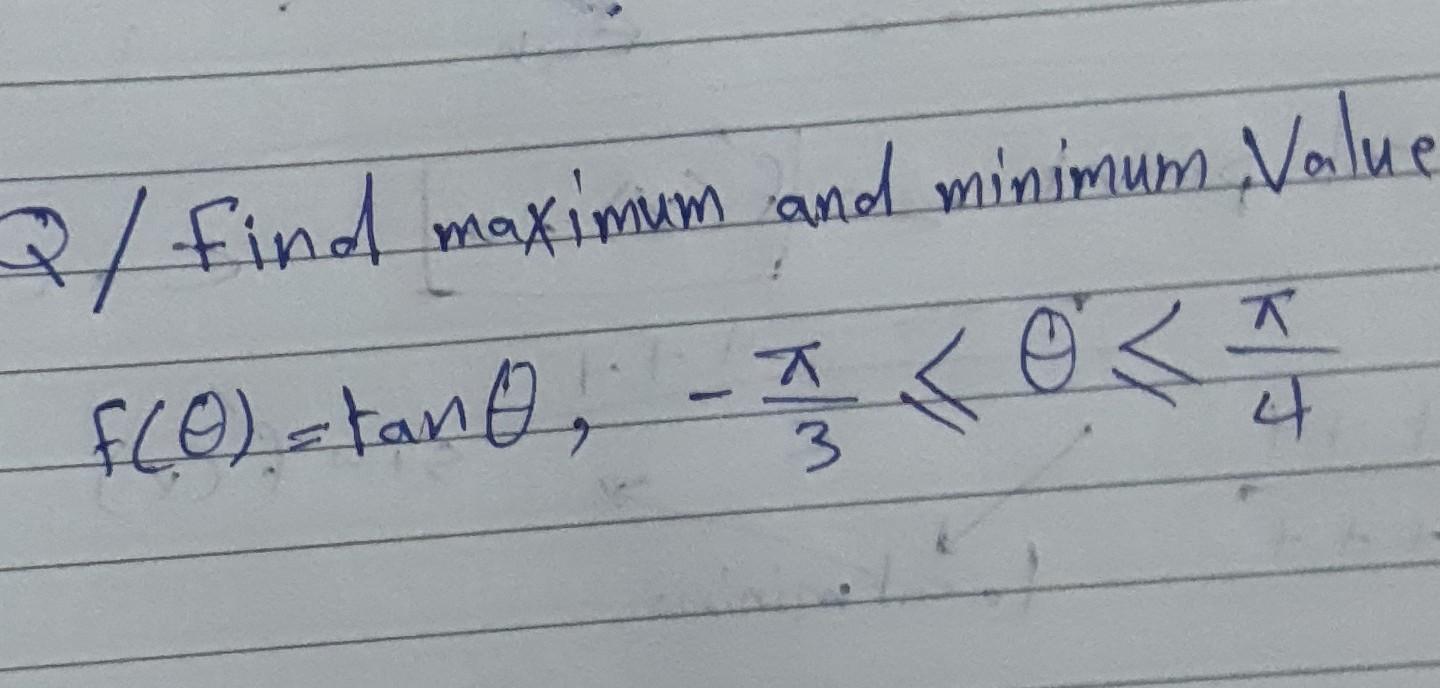 Q/ Find maximum and minimum Value
f(θ) = tan θ, -π/3 ≤ θ ≤ π/4